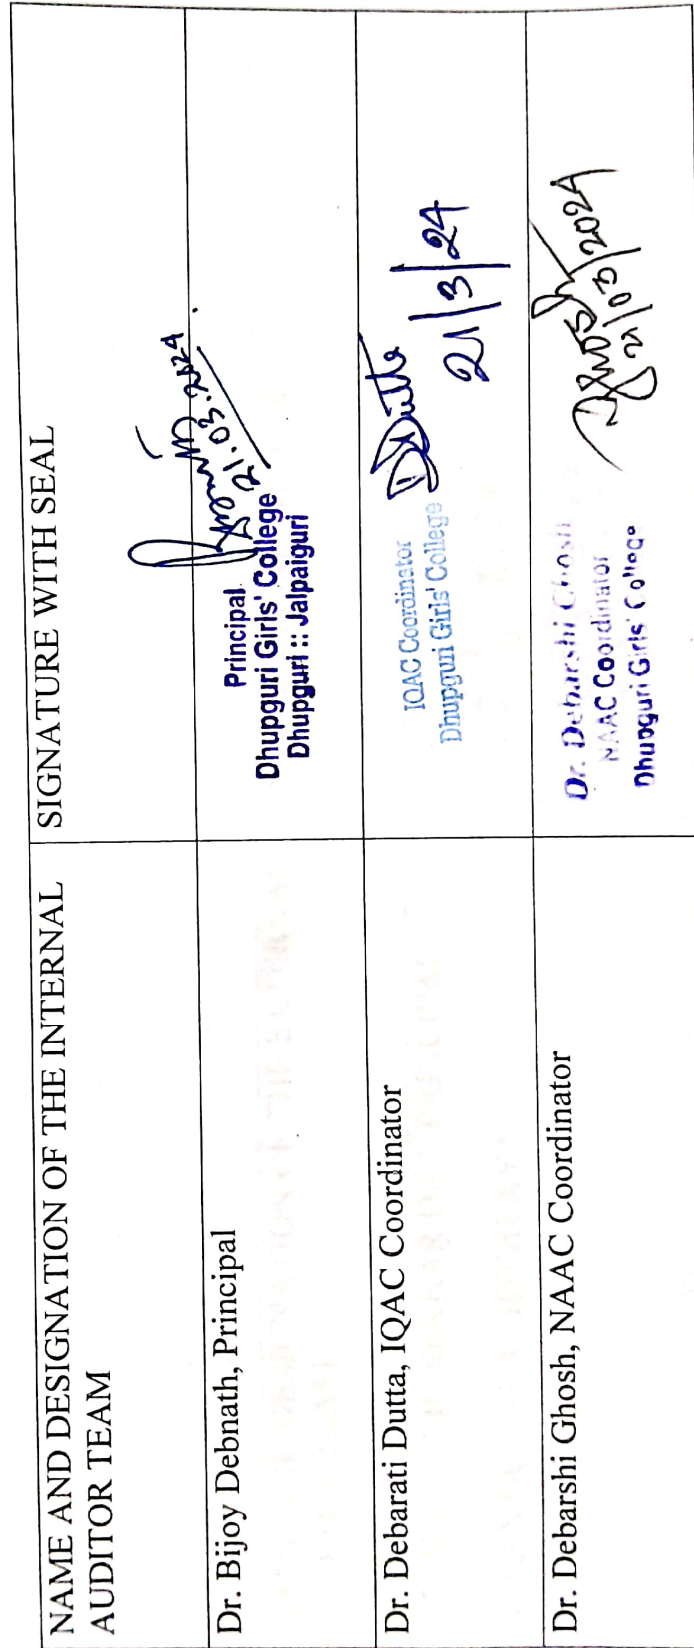 NAME AND DESIGNATION OF THE INTERNAL
AUDITOR TEAM
SIGNATURE WITH SEAL
Dr. Bijoy Debnath, Principal
21.03.2024
Principal
Dhupguri Girls' College
Dhupguri :: Jalpaiguri
Dr. Debarati Dutta, IQAC Coordinator
DDutta
21/3/24
IQAC Coordinator
Dhupguri Girls' College
Dr. Debarshi Ghosh, NAAC Coordinator
21/03/2024
Dr. Debarshi Ghosh
NAAC Coordinator
Dhupguri Girls' College